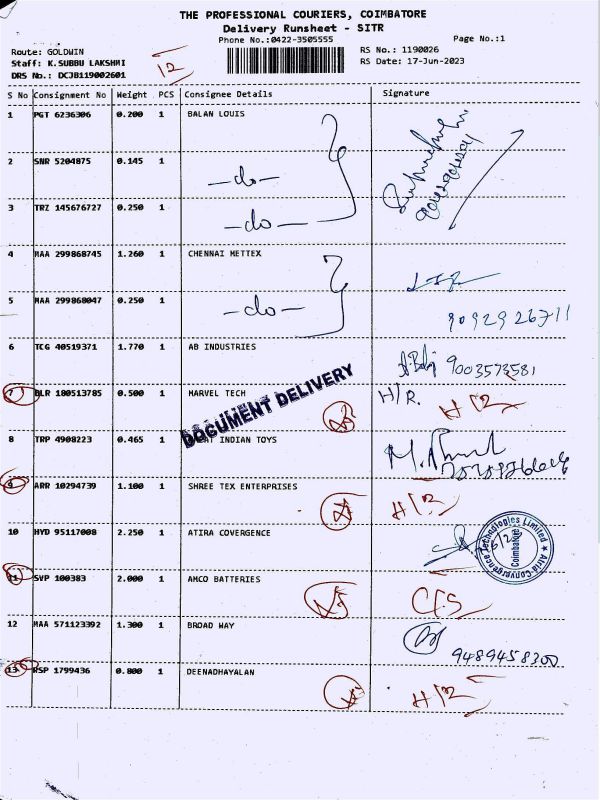 THE PROFESSIONAL COURIERS, COIMBATORE
Delivery Runsheet - SITR
Phone No.:0422-3505555
Page No.:1
Route: GOLDWIN
RS No.: 1190026
Staff: K.SUBBU LAKSHMI
12
RS Date: 17-Jun-2023
DRS No.: DCJB119002601
S No Consignment No Weight PCS Consignee Details Signature
1 PGT 6236306 0.200 1 BALAN LOUIS
2 SNR 5204875 0.145 1 -do-
3 TRZ 145676727 0.250 1 -do-
4 MAA 299868745 1.260 1 CHENNAI METTEX
5 MAA 299868047 0.250 1 -do- 9092926711
6 TCG 40519371 1.770 1 AB INDUSTRIES 9003573581
7 BLR 180513785 0.500 1 MARVEL TECH H/R.
DOCUMENT DELIVERY
8 TRP 4908223 0.465 1 INDIAN TOYS
9 ARR 10294739 1.100 1 SHREE TEX ENTERPRISES
10 HYD 95117008 2.250 1 ATIRA COVERGENCE
Atria Convergence Technologies Limited
Coimbatore
11 SVP 100383 2.000 1 AMCO BATTERIES
12 MAA 571123392 1.300 1 BROAD WAY 9489458300
13 RSP 1799436 0.800 1 DEENADHAYALAN